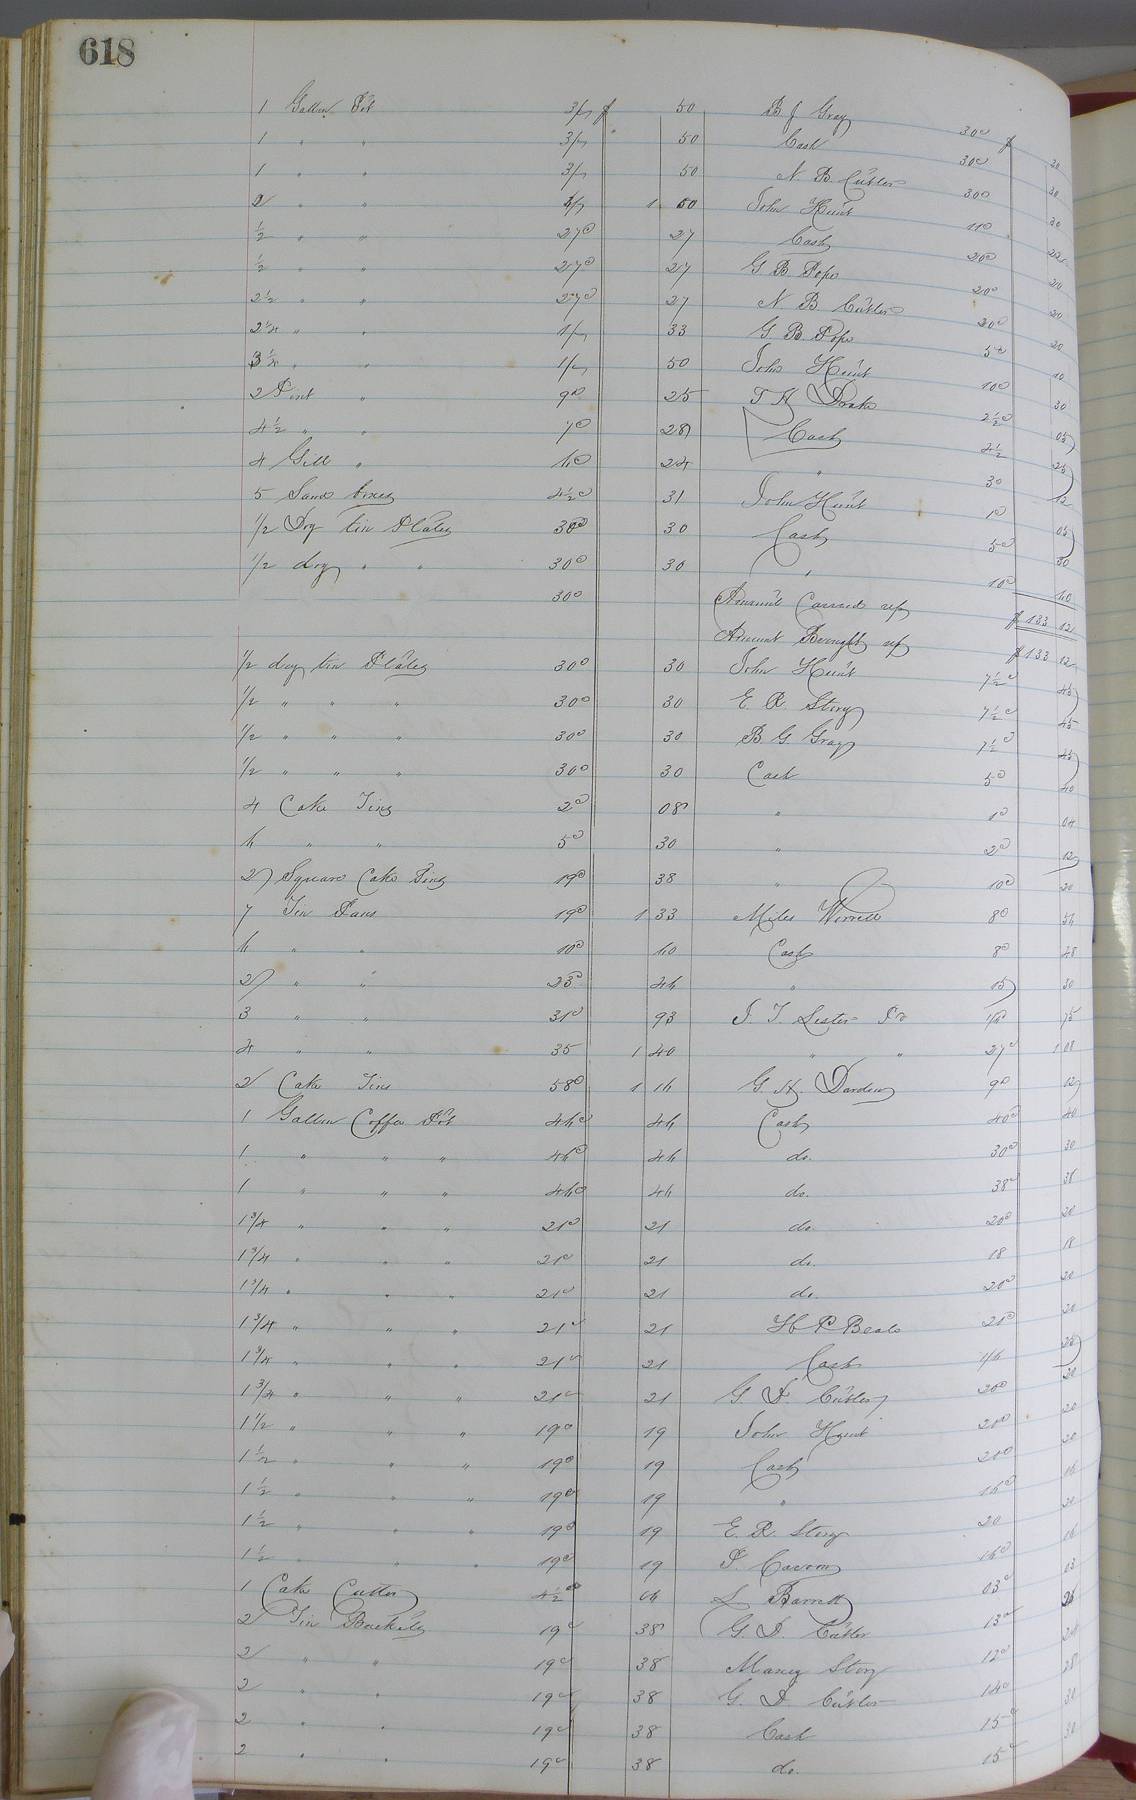 618
1 Gallon Pot 3/ $ 50 B J Gray 30c $ 30
1 " " 3/ 50 Cash 30c 30
1 " " 3/ 50 N. B. Cutler 30c 30
2 " " 1 50 John Hunt 11c 22
1/2 " " 27c 27 Cash 20c 20
1/2 " " 27c 27 G B Pope 20c 20
2 1/2 " " 27c 27 N B Cutler 20c 20
2 1/4 " " 1/ 33 G. B. Pope 5c 10
3 1/4 " " 1/ 50 John Hunt 10c 30
2 Pint " 9c 25 T H Drake 2 1/2c 05
4 1/2 " " 7c 28 Cash 4 1/2 25
4 Gill " 24 " 3c 12
5 Sand boxes 4 1/2c 31 John Hunt 1c 05
1/2 Doz tin Plates 30c 30 Cash 5c 30
1/2 doz " " 30c 30 " 10c 60
30c Amount Carried up $133 12
Amount Brought up $133 12
1/2 doz tin Plates 30c 30 John Hunt 7 1/2c 45
1/2 " " " 30c 30 E. R. Story 7 1/2c 45
1/2 " " " 30c 30 B G Gray 7 1/2c 45
1/2 " " " 30c 30 Cash 5c 40
4 Cake Tins 2c 08 " 1c 04
6 " " 5c 30 " 2c 12
2 Square Cake Tins 19c 38 " 10c 20
7 Tin Pans 19c 1 33 Miles Worrell 8c 56
6 " " 10c 60 Cash 8c 48
2 " " 23c 46 " 15 30
3 " " 31c 93 J. T. Lester 75
4 " " 35 1 40 " " 27c 1 08
2 Cake Tins 58c 1 16 G. H. Darden 9c 12
1 Gallon Coffee Pot 46c 46 Cash 40c 40
1 " " " 46c 46 do. 30c 30
1 " " " 46c 46 do. 38c 38
1 3/4 " " " 21c 21 do. 20c 20
1 3/4 " " " 21c 21 do. 18 18
1 3/4 " " " 21c 21 do. 20c 20
1 3/4 " " " 21c 21 H P Beale 20c 20
1 3/4 " " " 21c 21 Cash 1/6 25
1 3/4 " " " 21c 21 G. D. Cutler 20c 20
1 1/2 " " " 19c 19 John Hunt 20c 20
1 1/2 " " " 19c 19 Cash 20c 20
1 1/2 " " " 19c 19 " 16c 16
1 1/2 " " " 19c 19 E. R. Story 20 20
1 1/2 " " 19c 19 16c 16
1 Cake Cutter 4 1/2c 04 L Barrett 03c 03
2 Tin Buckets 19c 38 G. D. Cutler 13c 26
2 " " 19c 38 Story 12c 24
2 " " 19c 38 G. D. Cutler 14c 28
2 " " 19c 38 Cash 15c 30
2 " " 19c 38 do. 15c 30